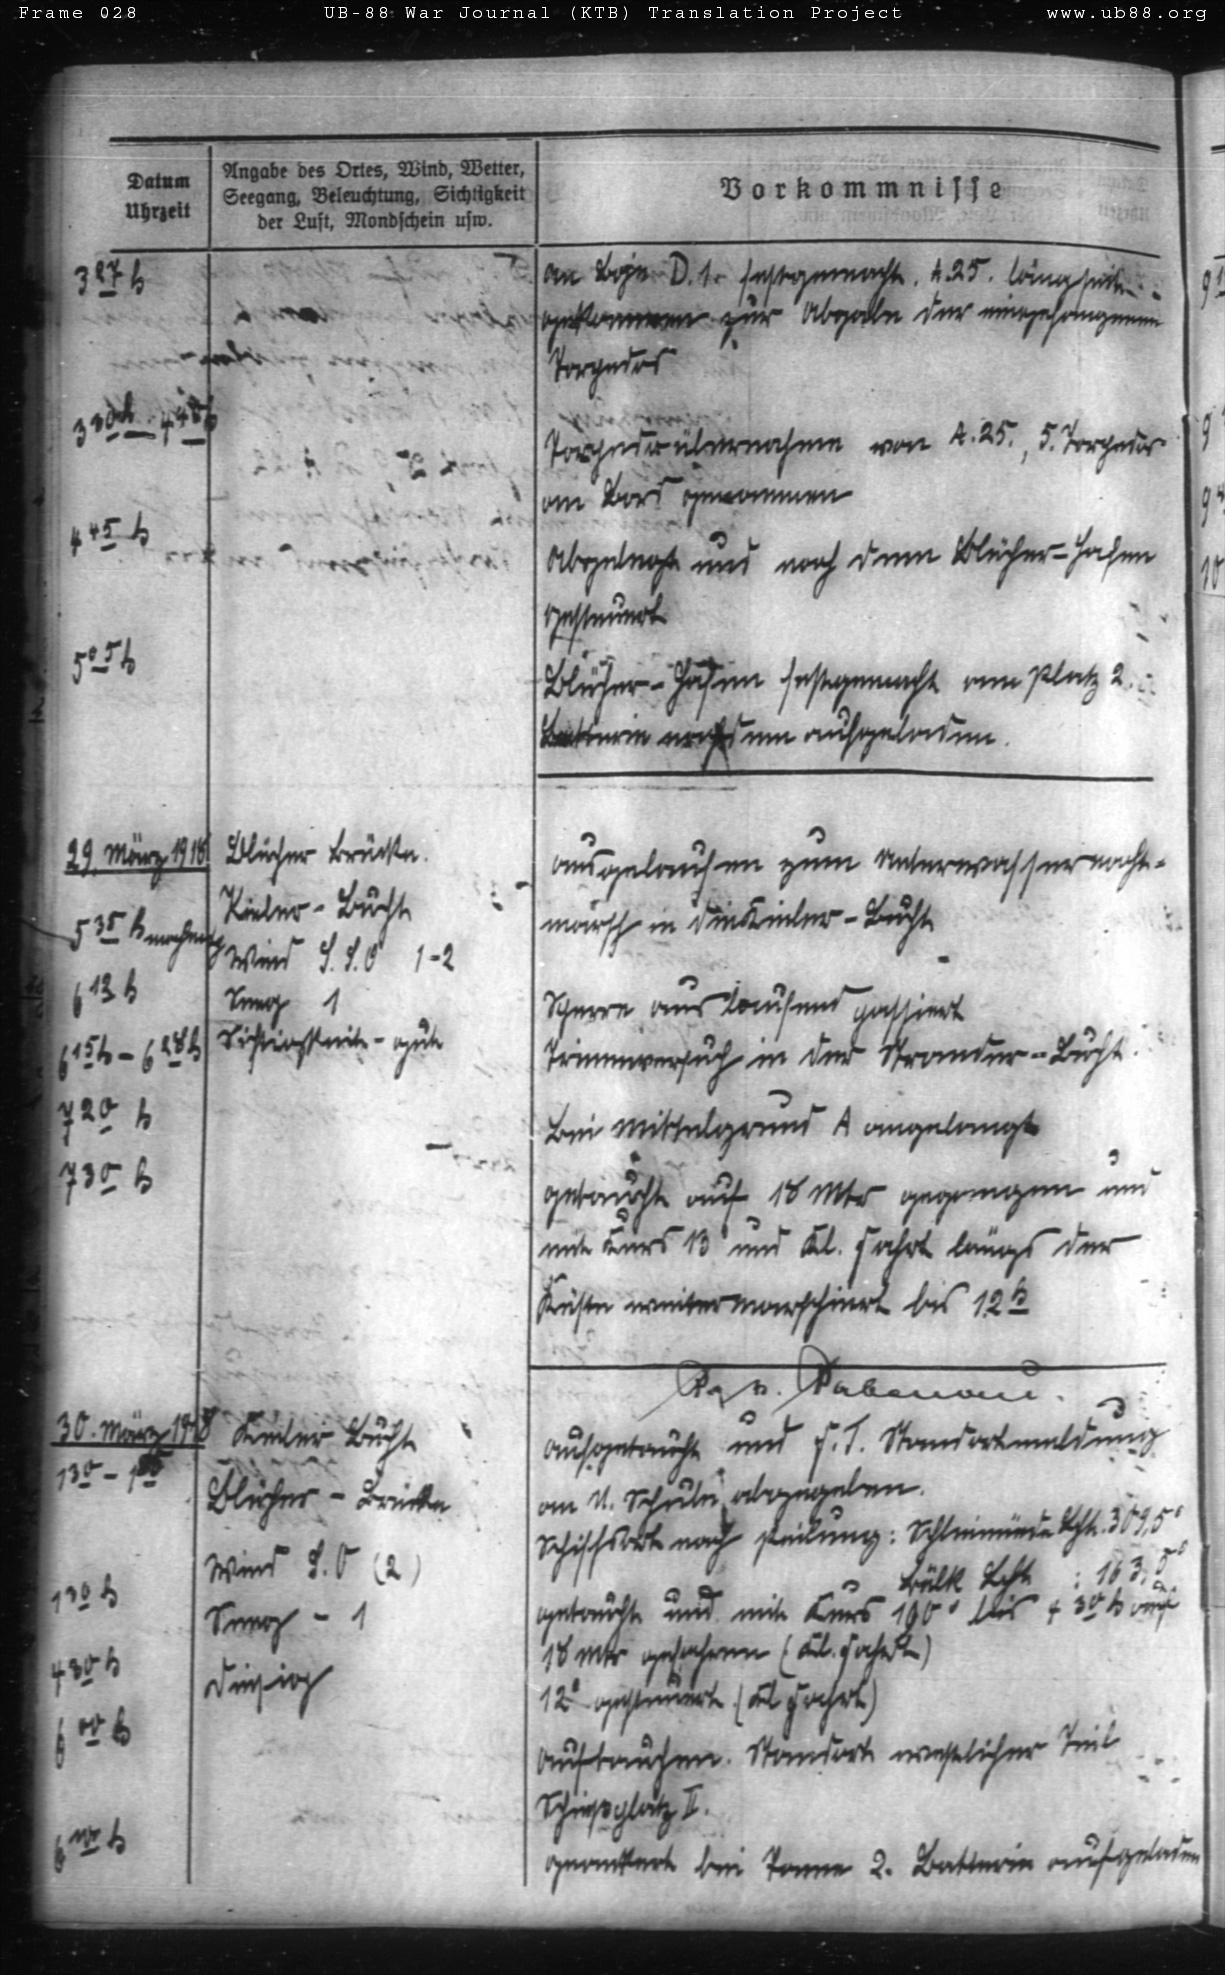 Frame 028 UB-88 War Journal (KTB) Translation Project www.ub88.org
Datum
Uhrzeit
Angabe des Ortes, Wind, Wetter,
Seegang, Beleuchtung, Sichtigkeit
der Luft, Mondschein usw.
Vorkommnisse
3 27 h
an Boje D. 1. festgemacht. A. 25. längsseits
gekommen zur Abgabe der eingefangenen
Torpedos
3 30 h - 4 45 h
Torpedoübernahme von A. 25., 5. Torpedos
an Bord genommen
4 45 h
Abgelegt und nach dem Blücher-Hafen
gesteuert
5 05 h
Blücher-Hafen festgemacht am Platz 2.
Batterie aufgeladen.
29. März 1918
Blücher Brücke.
ausgelaufen zum Unterwassernacht-
5 35 h nachmttg
Kieler-Bucht
marsch in die Kieler-Bucht
Wind S.S.O 1-2
6 13 h
Seeg 1
Sperre auslaufend passiert
6 15 h - 6 28 h
Sichtigkeit - gut
Trimmversuch in der Strander-Bucht.
7 20 h
Bei Mittelgrund A angelangt
7 30 h
getaucht auf 18 Mtr gegangen und
mit Kurs 13° und Kl. Fahrt längs der
Küste weitermarschiert bis 12 h
v. Rabenau.
30. März 1918
Kieler Bucht
aufgetaucht und F.T. Standortmeldung
1 20 -
Blücher-Brücke
an U. Schule abgegeben.
Schiffsort nach Peilung: Schleimünde Lcht. 309,5°
Wind S.O (2)
Bülk Lcht : 163,5°
1 30 h
Seeg - 1
getaucht und mit Kurs 190° bis 4 30 h auf
18 Mtr gefahren (Kl. Fahrt)
4 30 h
Diesig
12° gesteuert (Kl Fahrt)
6 00 h
auftauchen. Standort westlicher Teil
Schießplatz II.
6 h
geankert bei Tonne 2. Batterie aufgeladen